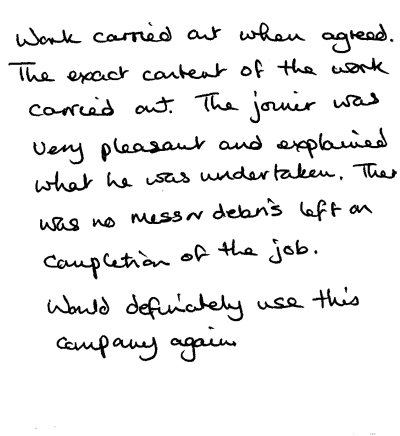 Work carried out when agreed.
The exact content of the work
carried out. The joiner was
very pleasant and explained
what he was undertaken. Ther
was no mess or debris left on
completion of the job.
Would definately use this
company again.